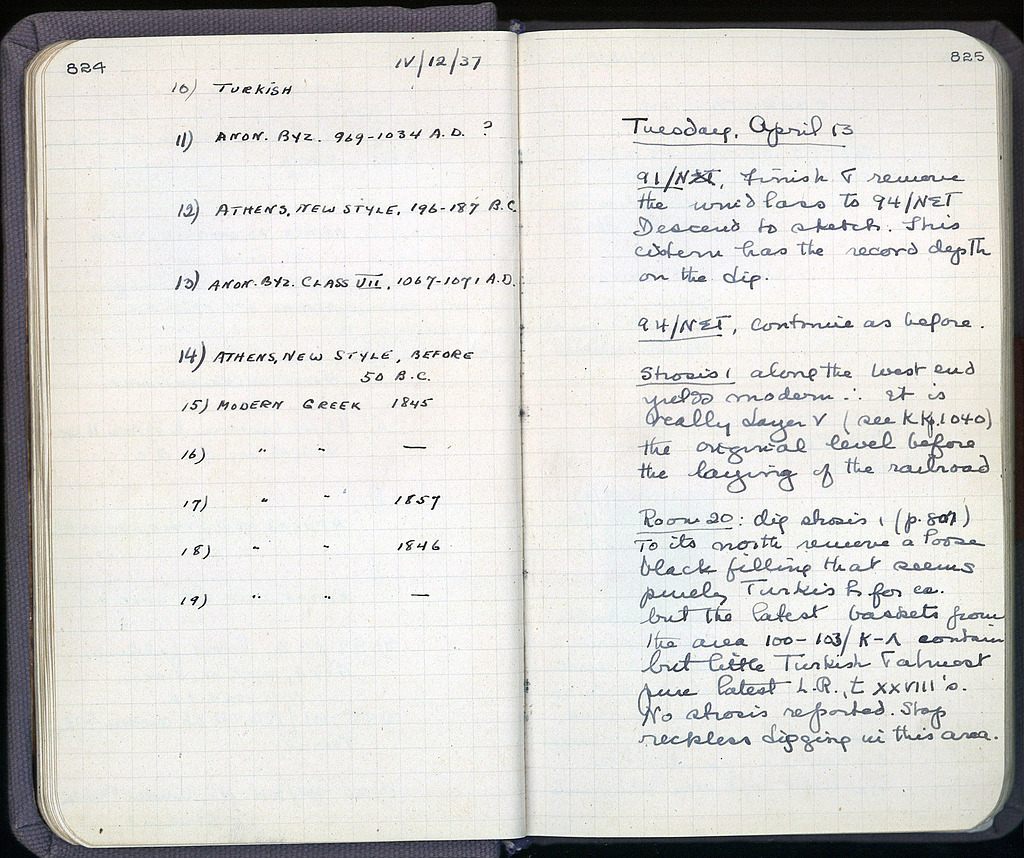 824
IV/12/37
10) TURKISH
11) ANON. BYZ. 969-1034 A.D. ?
12) ATHENS, NEW STYLE, 196-187 B.C.
13) ANON. BYZ. CLASS VII, 1067-1071 A.D.
14) ATHENS, NEW STYLE, BEFORE
50 B.C.
15) MODERN GREEK 1845
16) " " —
17) " " 1857
18) " " 1846
19) " " —
825
Tuesday, April 13
91/NΣΤ, Finish & remove
the windlass to 94/NΣΤ
Descend to sketch. This
cistern has the record depth
on the dig.
94/NΣΤ, continue as before.
Strosis 1 along the west end
yields modern ∴ it is
really Layer V (see KK p. 1040)
the original level before
the laying of the railroad
Room 20: dig strosis 1 (p. 801)
To its north remove a loose
black filling that seems
purely Turkish for ca.
but the latest baskets from
the area 100-103/K-Λ contain
but little Turkish & almost
pure latest L.R., & XXVIII's.
No strosis reported. Stop
reckless digging in this area.